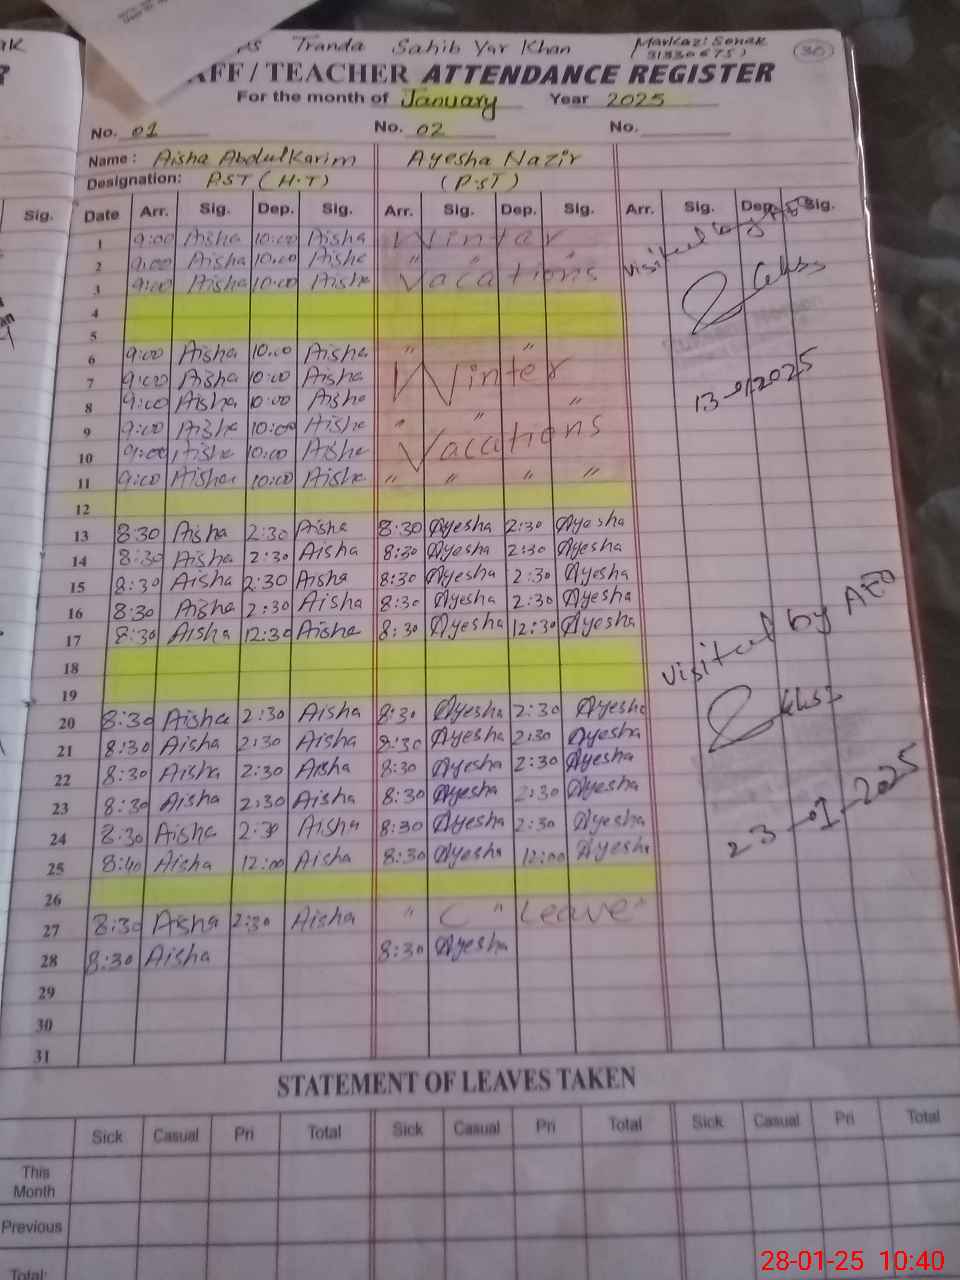 Tranda Sahib Yar Khan Markaz: Sonak
(31330675) 30
AFF / TEACHER ATTENDANCE REGISTER
For the month of January Year 2025
No. 01 No. 02 No.
Name : Aisha Abdul Karim Ayesha Nazir
Designation: PST (H.T) (PST)
Sig. Date Arr. Sig. Dep. Sig. Arr. Sig. Dep. Sig. Arr. Sig. Dep. Sig.
1 9:00 Aisha 10:00 Aisha Winter
2 9:00 Aisha 10:00 Aisha " "
3 9:00 Aisha 10:00 Aisha Vacations
visited by AEO
4
5
6 9:00 Aisha 10:00 Aisha " "
7 9:00 Aisha 10:00 Aisha Winter
8 9:00 Aisha 10:00 Aisha " "
13-01-2025
9 9:00 Aisha 10:00 Aisha "
10 9:00 Aisha 10:00 Aisha Vacations
11 9:00 Aisha 10:00 Aisha " " " "
12
13 8:30 Aisha 2:30 Aisha 8:30 Ayesha 2:30 Ayesha
14 8:30 Aisha 2:30 Aisha 8:30 Ayesha 2:30 Ayesha
15 8:30 Aisha 2:30 Aisha 8:30 Ayesha 2:30 Ayesha
16 8:30 Aisha 2:30 Aisha 8:30 Ayesha 2:30 Ayesha
17 8:30 Aisha 12:30 Aisha 8:30 Ayesha 12:30 Ayesha
visited by AEO
18
19
20 8:30 Aisha 2:30 Aisha 8:30 Ayesha 2:30 Ayesha
21 8:30 Aisha 2:30 Aisha 8:30 Ayesha 2:30 Ayesha
22 8:30 Aisha 2:30 Aisha 8:30 Ayesha 2:30 Ayesha
23 8:30 Aisha 2:30 Aisha 8:30 Ayesha 2:30 Ayesha
23-01-2025
24 8:30 Aisha 2:30 Aisha 8:30 Ayesha 2:30 Ayesha
25 8:40 Aisha 12:00 Aisha 8:30 Ayesha 12:00 Ayesha
26
27 8:30 Aisha 2:30 Aisha " C " Leave "
28 8:30 Aisha 8:30 Ayesha
29
30
31
STATEMENT OF LEAVES TAKEN
Sick Casual Pri Total Sick Casual Pri Total Sick Casual Pri Total
This
Month
Previous
Total:
28-01-25 10:40